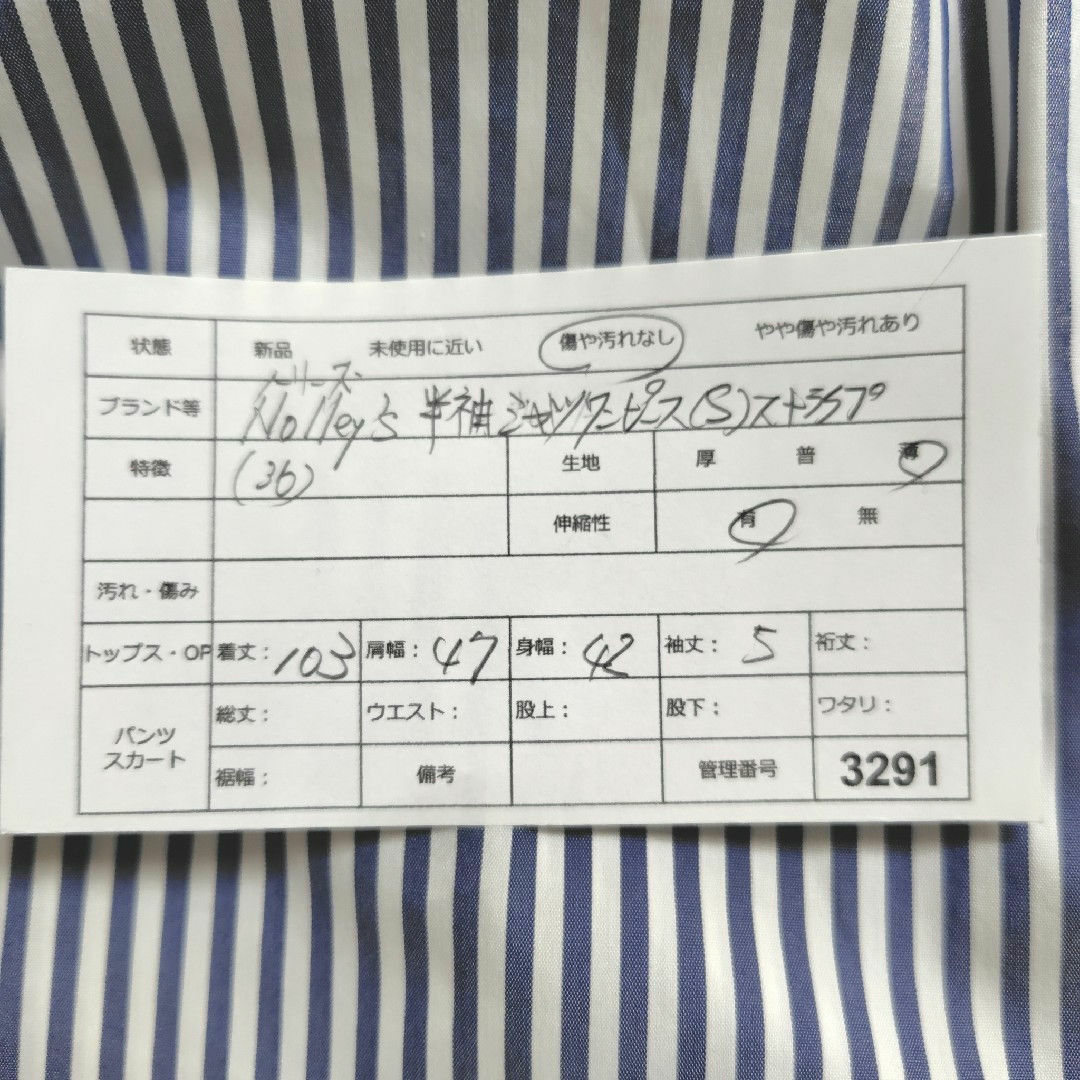 状態 新品 未使用に近い 傷や汚れなし やや傷や汚れあり
ノーリーズ
ブランド等 Nolley's 半袖シャツワンピース(S)ストライプ
特徴 (36) 生地 厚 普 薄
伸縮性 有 無
汚れ・傷み
トップス・OP 着丈: 103 肩幅: 47 身幅: 42 袖丈: 5 裄丈:
パンツ スカート 総丈: ウエスト: 股上: 股下: ワタリ:
裾幅: 備考 管理番号 3291